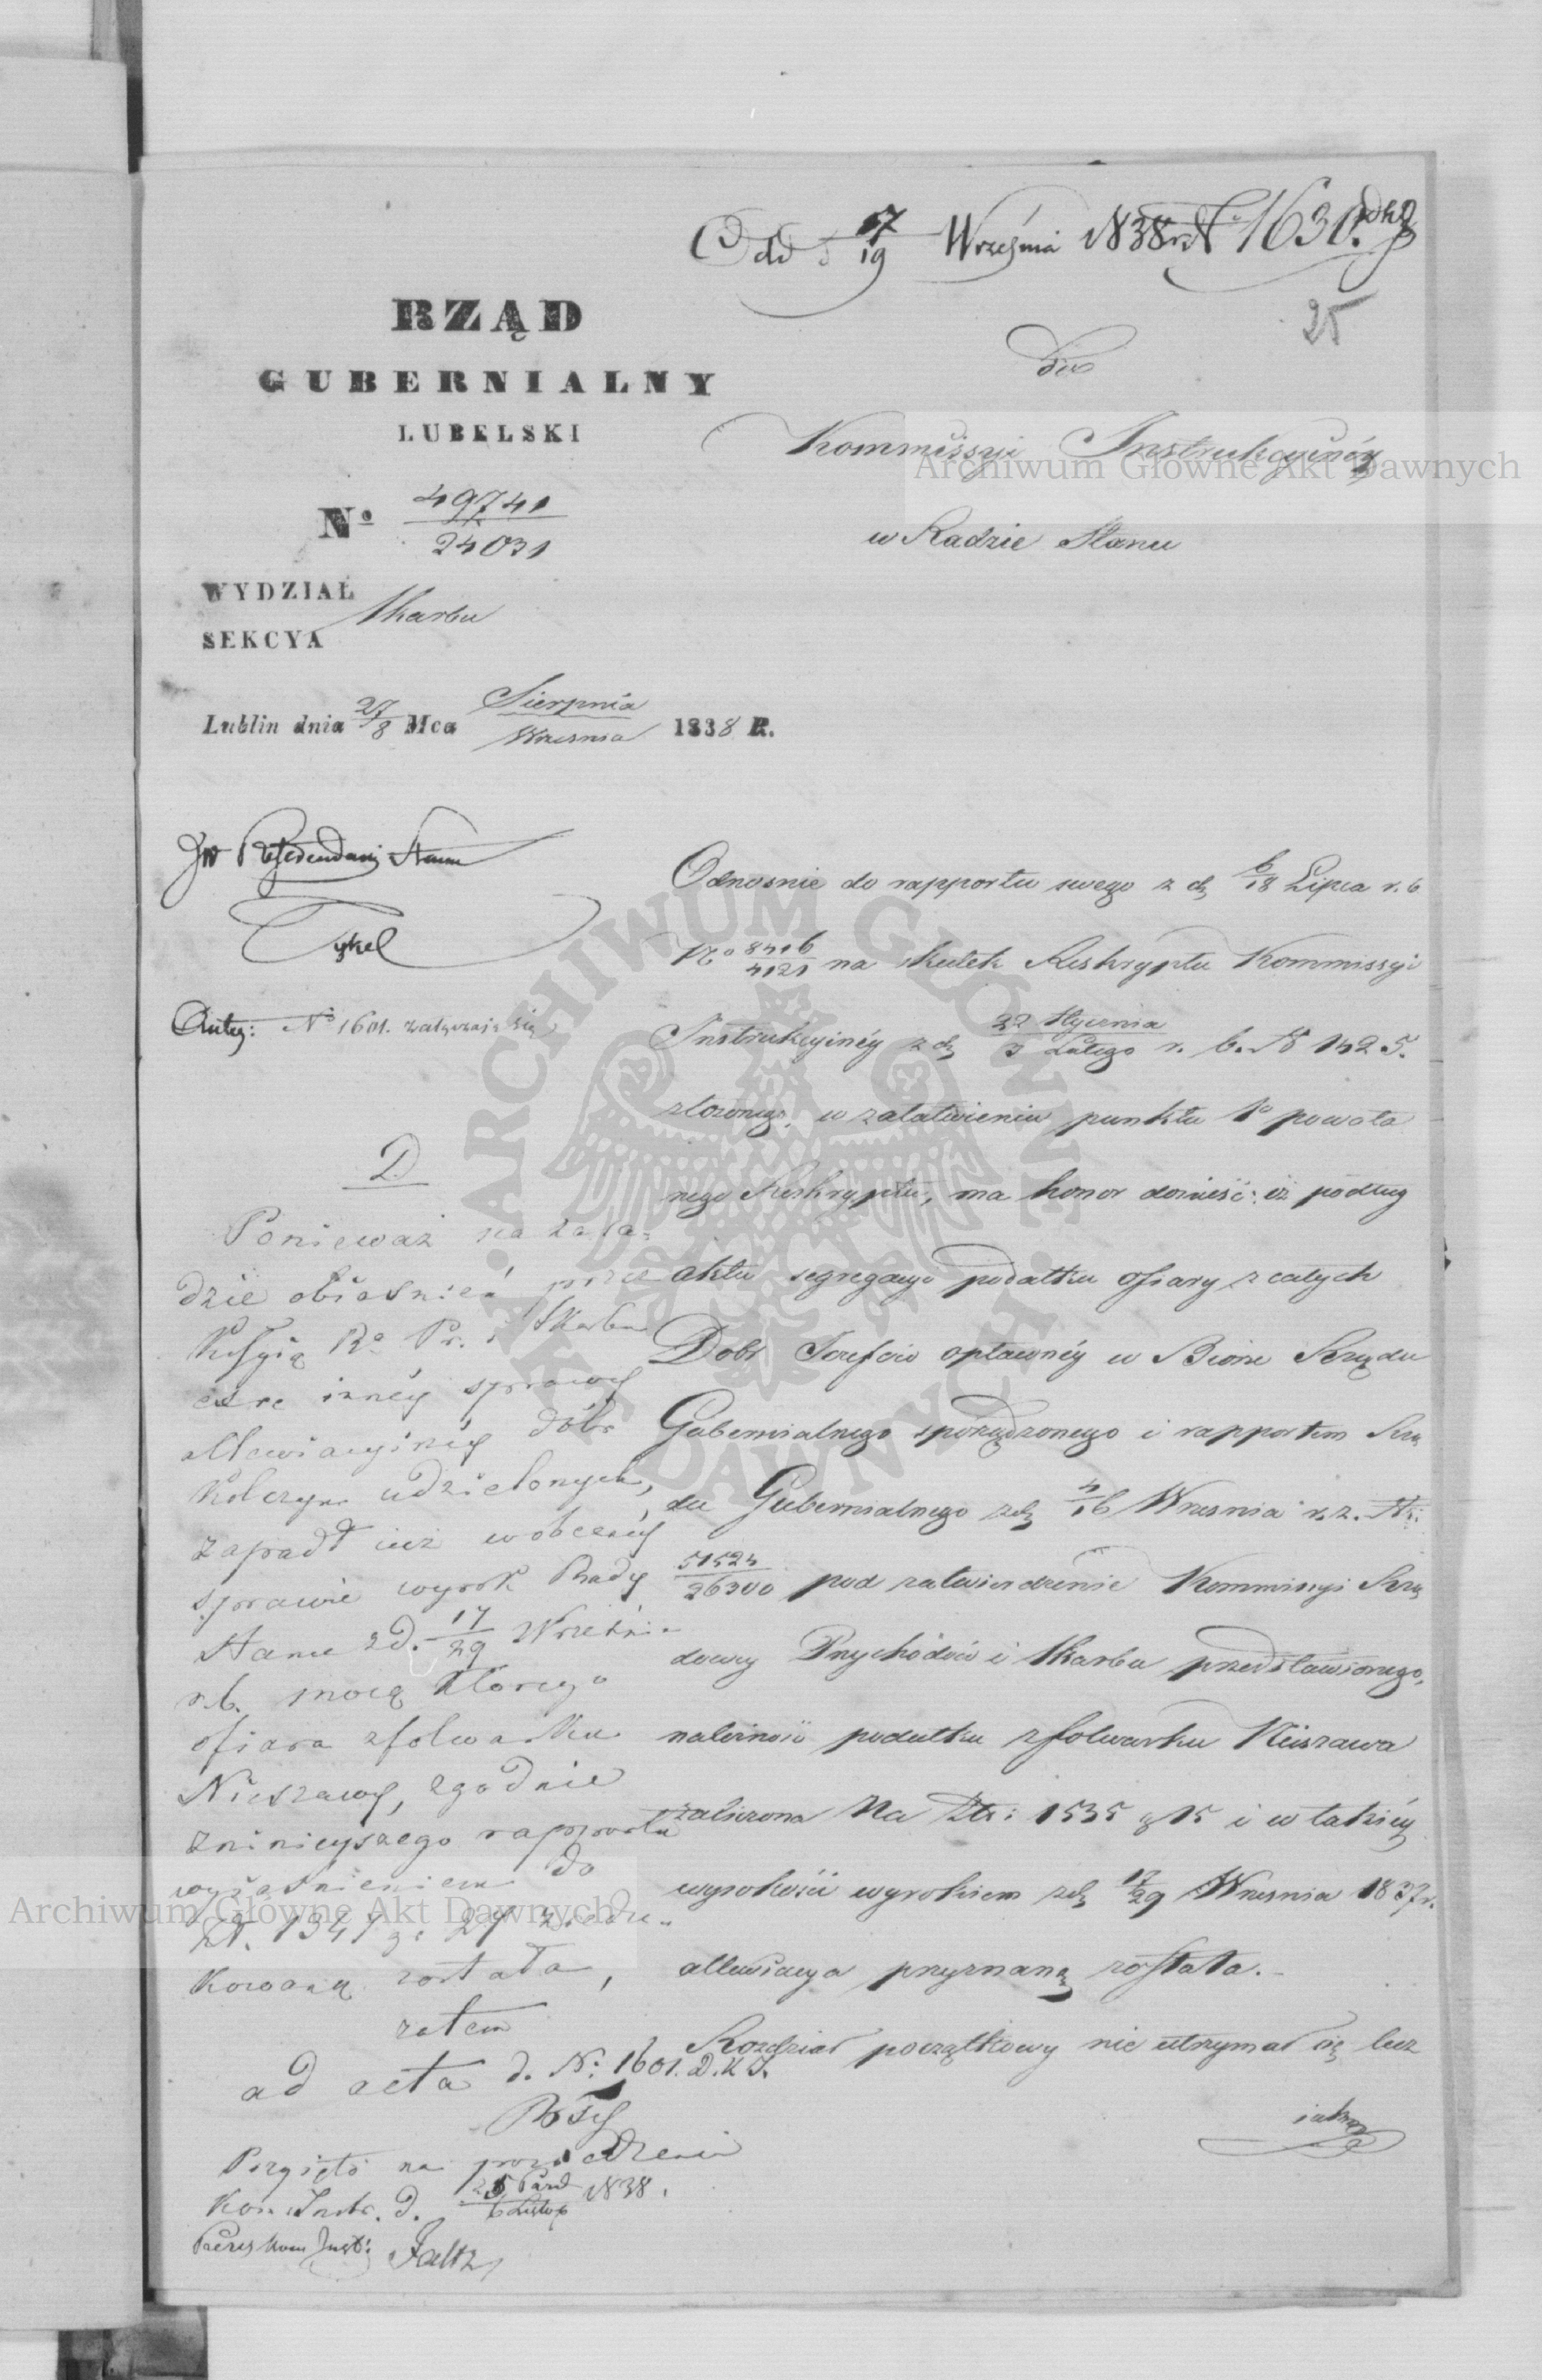 Odd d 7/19 Września 1838 r. N 1630.
25
RZĄD
GUBERNIALNY
LUBELSKI
Nº 49741/24031
WYDZIAŁ Skarbu
SEKCYA
Lublin dnia 27/8 Mca Sierpnia/Wrzesnia 1838 R.
Do
Kommissyi Instrukcyinéy
w Radzie Stanu
JW Referendarz Stanu
Tykel
Antez: Nº 1601. załączaią się
D
Ponieważ na zasa-
dzie obiaśnień przez
Kosyią R. Pr. i Skarbu
co re innéy sprawy
allewiacyinéy dóbr
Kolczyn udzielonych,
zapadł iuż w obecnéy
sprawie wyrok Rady
Stanu z d. 17/29 Wrześni-
r.b. mocą którego
ofiara z folwarku
Nieszawy, zgodnie
z ninieyszego rapportu
wyiaśnieniem do
zł. 1347 gr 27 zredu-
kowaną została,
zatem
ad acta d. Nº 1601. D.K.I.
Przyięto na posiedzeniu
Kom. Instr. d. 25 Paźd/6 Listop 1838.
Prezes Kom Inst: Faltz
Odnosnie do rapportu swego z d. 6/18 Lipca r. b
Nº 8416/4121 na skutek Reskryptu Kommissyi
Instrukcyinéy z d. 22 Stycznia/3 Lutego r. b. N 1425.
złożonego, w załatwieniu punktu 1º powoła
nego Reskryptu, ma honor donieść: iż podług
aktu segregacyi podatku ofiary z całych
Dobr Jozefów opłacanéy w Biorze Rządu
Gubernialnego sporządzonego i rapportem Rzą
du Gubernialnego z d. 4/16 Wrzesnia r. z. N:
51524/26300 pod zatwierdzenie Kommissyi Rzą
dowey Przychodów i Skarbu przedstawionego,
należność podatku z folwarku Nieszawa
zaliczona Na Złt: 1535 g 15 i w takiéy
wysokości wyrokiem z d. 17/29 Wrzesnia 1837 r.
allewiacya przyznaną została.
Rozdział początkowy nie utrzymał się lecz
iako
Archiwum Główne Akt Dawnych
Archiwum Główne Akt Dawnych
ARCHIWUM GŁÓWNE AKT DAWNYCH